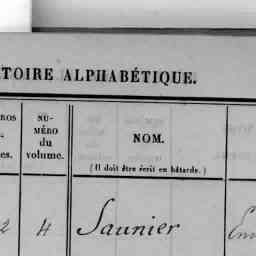 TOIRE ALPHABÉTIQUE.
ROS
NU-
MÉRO
du
volume.
NOM.
(Il doit être écrit en bâtarde.)
es.
2 4 Saunier